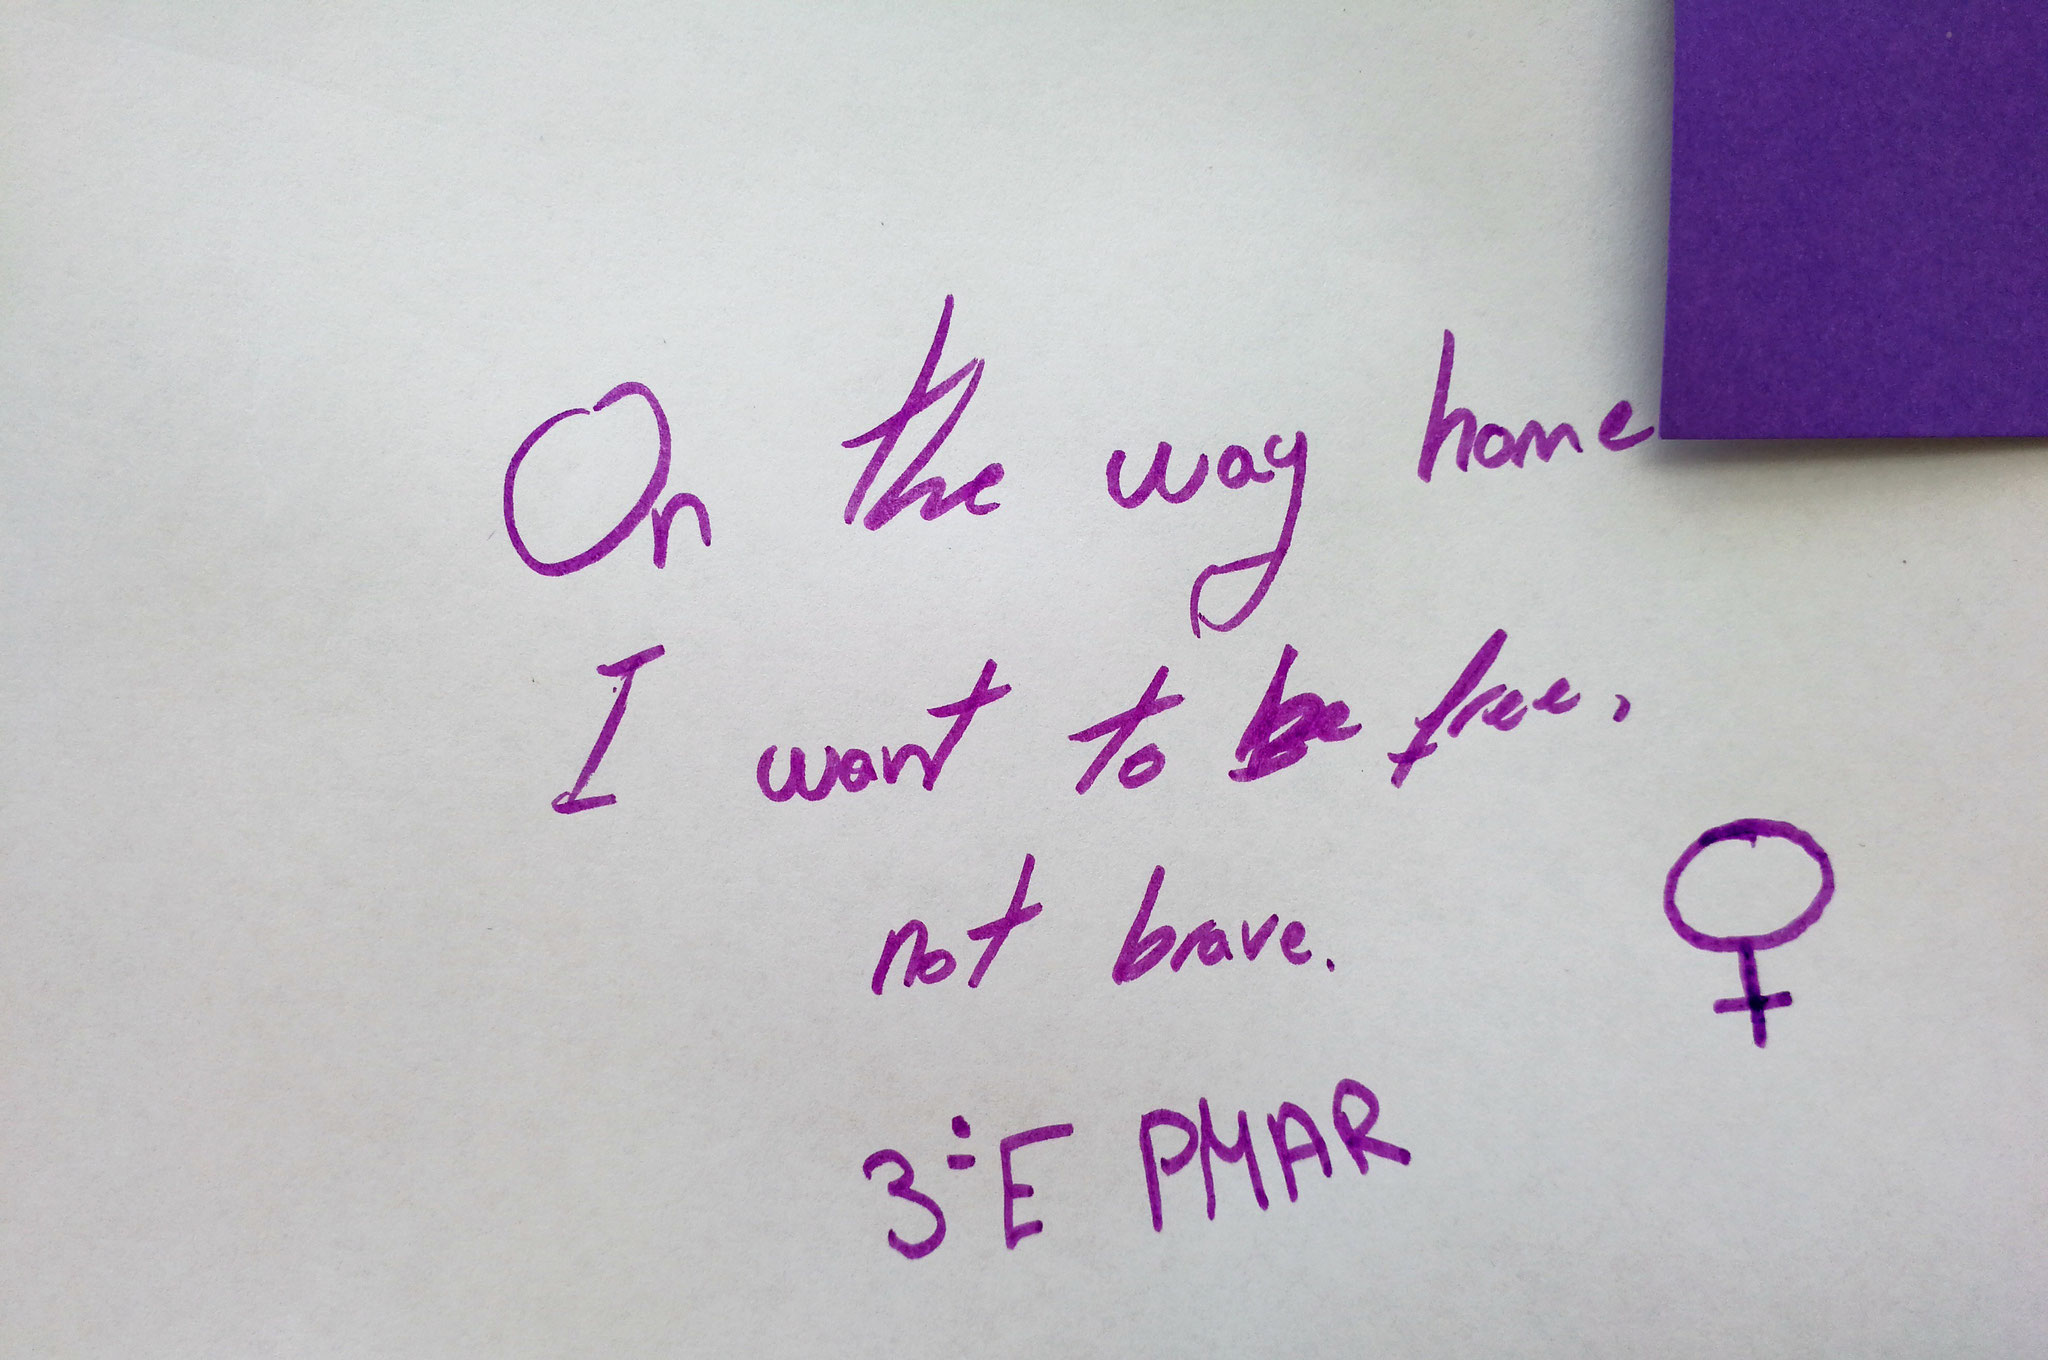 On the way home
I want to be free,
not brave.
3º E PMAR